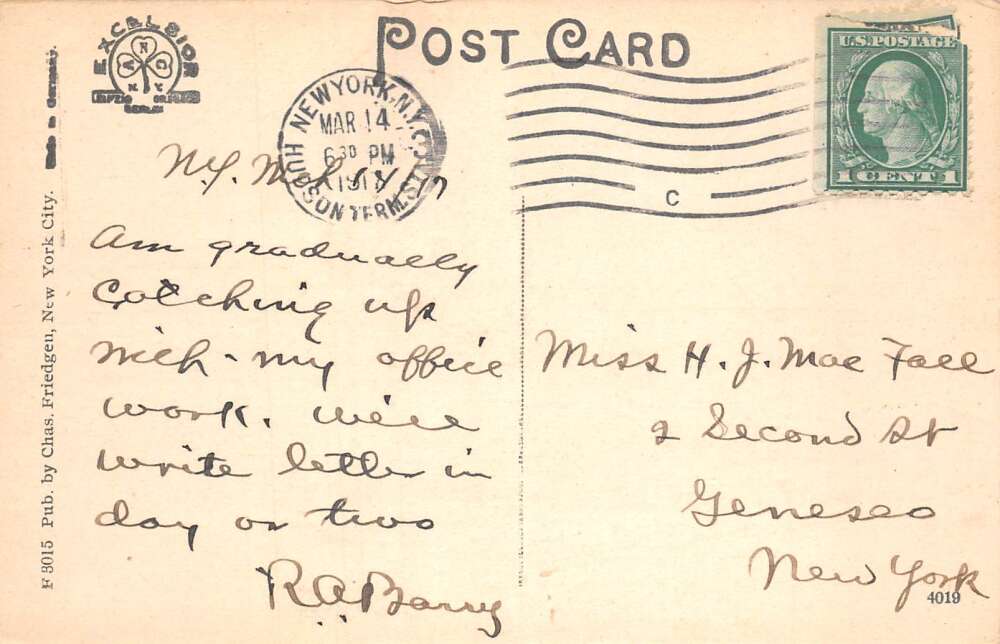 POST CARD
EXCELSIOR
A N C
N.Y.
BERLIN
Made in Germany.
F 3015 Pub. by Chas. Friedgen, New York City.
NEW YORK, N.Y.
HUDSON TERM. STA.
MAR 14
6 30 PM
C
U.S. POSTAGE
1 CENT 1
N.Y. Mch 14/17
Am gradually
Catching up
with my office
work. Will
write letter in
day or two
R.A. Barry
Miss H. J. Mac Fall
2 Second St
Geneseo
New York
4019